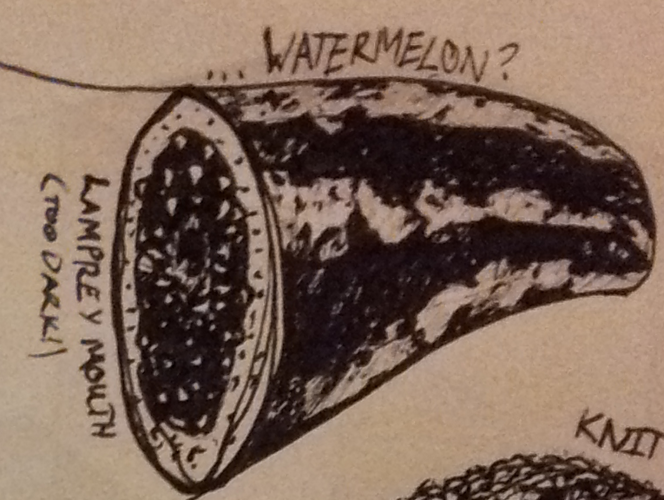 ... WATERMELON?
LAMPREY MOUTH
(TOO DARK!)
KNIT